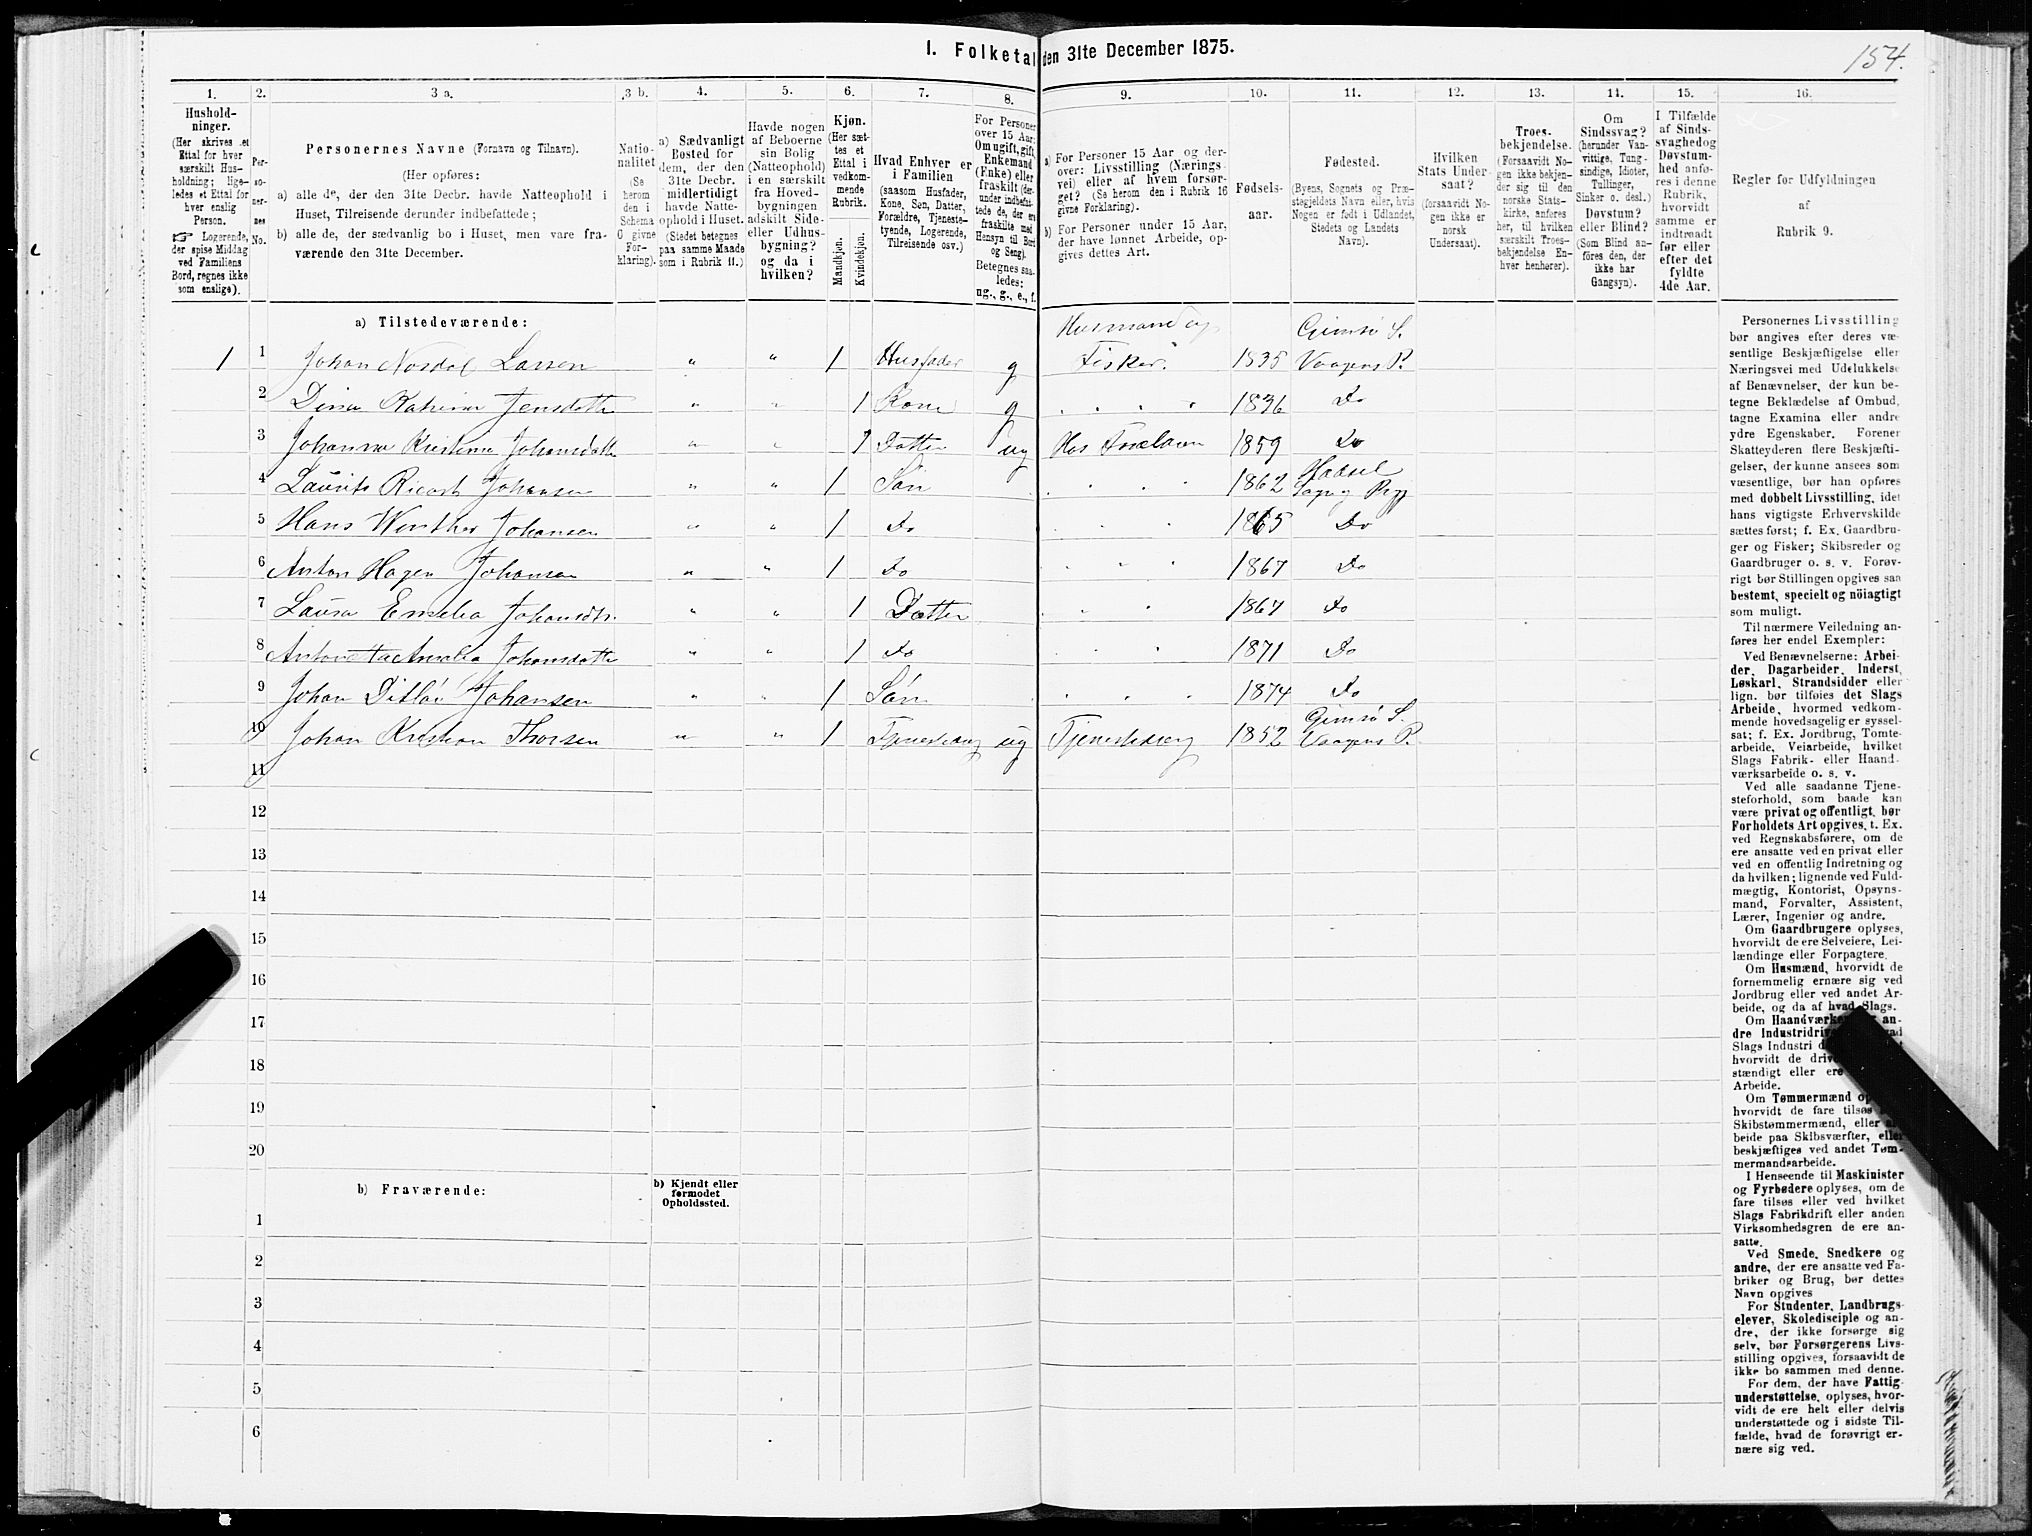 I. Folketal den 31te December 1875.
154.
1. 2. 3 a. 3 b. 4. 5. 6. 7. 8. 9. 10. 11. 12. 13. 14. 15. 16.
Hushold-
ninger.
(Her skrives et
Ettal for hver
særskilt Hus-
holdning; lige-
ledes et Ettal for
hver enslig
Person.
☞ Logerende,
der spise Middag
ved Familiens
Bord, regnes ikke
som enslige).
Per-
so-
ner-
nes
No.
Personernes Navne (Fornavn og Tilnavn).
(Her opføres:
a) alle de, der den 31te Decbr. havde Natteophold i
Huset, Tilreisende derunder indbefattede;
b) alle de, der sædvanlig bo i Huset, men vare fra-
værende den 31te December.
Natio-
nalitet
(Se
herom
den i
Schema
C givne
For-
klaring).
a) Sædvanligt
Bosted for
dem, der den
31te Decbr.
midlertidigt
havde Natte-
ophold i Huset.
(Stedet betegnes
paa samme Maade
som i Rubrik 11.)
Havde nogen
af Beboerne
sin Bolig
(Natteophold)
i en særskilt
fra Hoved-
bygningen
adskilt Side-
eller Udhus-
bygning?
og da i
hvilken?
Kjøn.
(Her sæt-
tes et
Ettal i
vedkom-
mende
Rubrik.
Mandkjøn.
Kvindekjøn.
Hvad Enhver er
i Familien
(saasom Husfader,
Kone, Søn, Datter,
Forældre, Tjeneste-
tyende, Logerende,
Tilreisende osv.)
For Personer
over 15 Aar:
Om ugift, gift,
Enkemand
(Enke) eller
fraskilt (der-
under indbefat-
tede de, der ere
fraskilte med
Hensyn til Bord
og Seng).
Betegnes saa-
ledes:
ug., g., e., f.
a) For Personer 15 Aar og der-
over: Livsstilling (Nærings-
vei) eller af hvem forsør-
get? (Se herom den i Rubrik 16
givne Forklaring).
b) For Personer under 15 Aar,
der have lønnet Arbeide, op-
gives dettes Art.
Fødsels-
aar.
Fødested.
(Byens, Sognets og Præ-
stegjeldets Navn eller, hvis
Nogen er født i Udlandet,
Stedets og Landets
Navn).
Hvilken
Stats Under-
saat?
(forsaavidt No-
gen ikke er
norsk
Undersaat).
Troes-
bekjendelse.
(Forsaavidt No-
gen ikke bekjen-
der sig til den
norske Stats-
kirke, anføres
her, til hvilken
særskilt Troes-
bekjendelse En-
hver henhører).
Om
Sindssvag?
(herunder Van-
vittige, Tung-
sindige, Idioter,
Tullinger,
Sinker o. desl.)
Døvstum?
eller Blind?
(Som Blind an-
føres den, der
ikke har
Gangsyn).
I Tilfælde
af Sinds-
svaghed og
Døvstum-
hed anfø-
res i denne
Rubrik,
hvorvidt
samme er
indtraadt
før eller
efter det
fyldte
4de Aar.
Regler for Udfyldningen
af
Rubrik 9.
a) Tilstedeværende:
Husmand og Gimsø S.
1 1 Johan Nordal Larsen " " 1 Husfader g Fisker. 1835 Vaagens P.
2 Dina Katrina Jensdatter " " 1 Kone g " " " " 1836 Do
3 Johanna Kristina Johansdatter " " 1 Datter ug Hos Forældrene 1859 Do
4 Laurits Ricart Johansen " " 1 Søn " " " 1862 Hadsel Sogn og Prgj
5 Hans Winther Johansen " " 1 Do " " " 1865 Do
6 Anton Hagen Johansen " " 1 Do " " " 1867 Do
7 Laura Emelia Johansdtr. " " 1 Datter " " " 1867 Do
8 Antonetta Amalia Johansdatter " " 1 Do " " " 1871 Do
9 Johan Ditlöv Johansen " " 1 Søn " " " 1874 Do
Gimsø S.
10 Johan Kristian Thorsen " " 1 Tjenestedreng ug Tjenestedreng 1852 Vaagens P.
11
12
13
14
15
16
17
18
19
20
b) Fraværende:
b) Kjendt eller
formodet
Opholdssted.
1
2
3
4
5
6
Personernes Livsstilling
bør angives efter deres væ-
sentlige Beskjæftigelse eller
Næringsvei med Udelukkelse
af Benævnelser, der kun be-
tegne Beklædelse af Ombud,
tagne Examina eller andre
ydre Egenskaber. Forener
Skatteyderen flere Beskjæfti-
gelser, der kunne ansees som
væsentlige, bør han opføres
med dobbelt Livsstilling, idet
hans vigtigste Erhvervskilde
sættes først; f. Ex. Gaardbru-
ger og Fisker; Skibsreder og
Gaardbruger o. s. v. Forøv-
rigt bør Stillingen opgives saa
bestemt, specielt og nöiagtigt
som muligt.
Til nærmere Veiledning an-
føres her endel Exempler:
Ved Benævnelserne: Arbei-
der, Dagarbeider, Inderst,
Løskarl, Strandsidder eller
lign. bør tilføies det Slags
Arbeide, hvormed vedkom-
mende hovedsagelig er syssel-
sat; f. Ex. Jordbrug, Tomte-
arbeide, Veiarbeide, hvilket
Slags Fabrik- eller Haand-
værksarbeide o. s. v.
Ved alle saadanne Tjene-
steforhold, som baade kan
være privat og offentligt, bør
Forholdets Art opgives, t. Ex.
ved Regnskabsførere, om de
ere ansatte ved en privat eller
ved en offentlig Indretning og
da hvilken; lignende ved Fuld-
mægtig, Kontorist, Opsyns-
mand, Forvalter, Assistent,
Lærer, Ingeniør og andre.
Om Gaardbrugere oplyses,
hvorvidt de ere Selveiere, Lei-
lændinge eller Forpagtere.
Om Husmænd, hvorvidt de
fornemmelig ernære sig ved
Jordbrug eller ved andet Ar-
beide, og da af hvad Slags.
Om Haandværkere an-
dre Industridri ad
Slags Industri d
hvorvidt de driv
stændigt eller ere
Arbeide.
Om Tømmermænd op
hvorvidt de fare tilsøs
Skibstømmermænd, eller ar-
beide paa Skibsværfter, eller
beskjæftiges ved andet Tøm-
mermandsarbeide.
I Henseende til Maskinister
og Fyrbødere oplyses, om de
fare tilsøs eller ved hvilket
Slags Fabrikdrift eller anden
Virksomhedsgren de ere an-
satte.
Ved Smede, Snedkere og
andre, der ere ansatte ved Fa-
briker og Brug, bør dettes
Navn opgives
For Studenter, Landbrugs-
elever, Skoledisciple og an-
dre, der ikke forsørge sig
selv, bør Forsørgerens Livs-
stilling opgives, forsaavidt de
ikke bo sammen med denne.
For dem, der have Fattig-
understøttelse, oplyses, hvor-
vidt de ere helt eller delvis
understøttede og i sidste Til-
fælde, hvad de forøvrigt er-
nære sig ved.